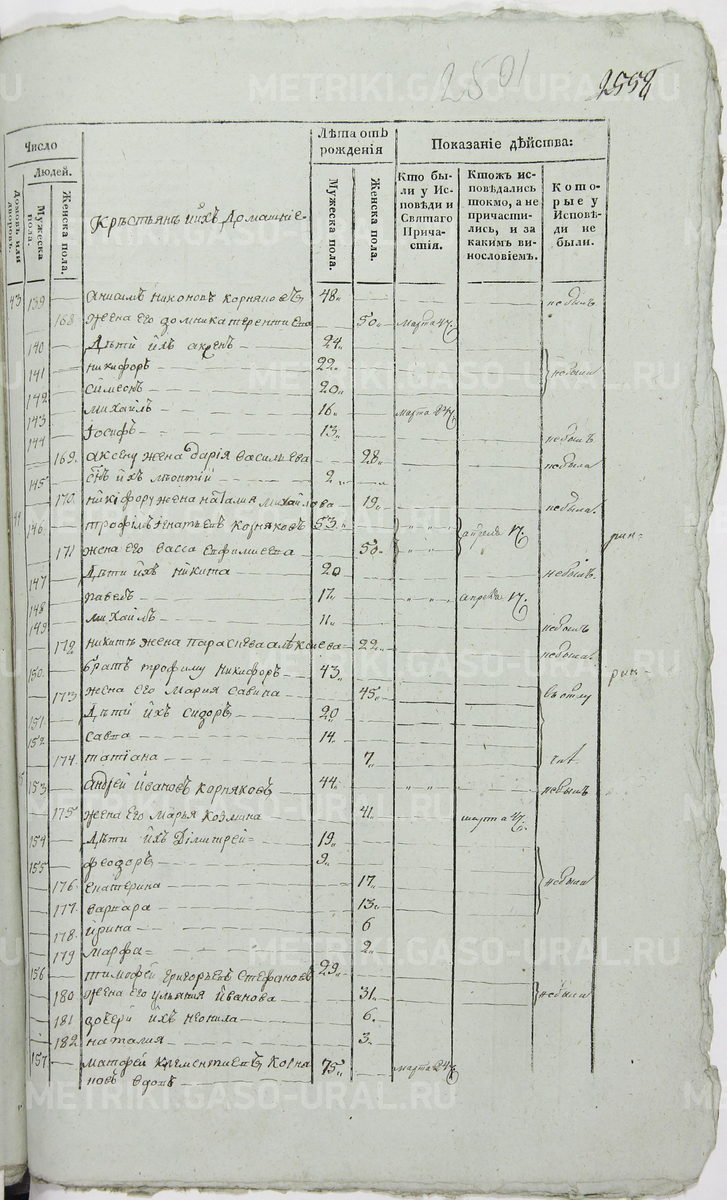 2501
2558
Число
Людей.
Домовъ или дворовъ.
Мужеска пола.
Женска пола.
Крестьянъ ихъ Домашніе
Лѣта отъ рожденія
Мужеска пола.
Женска пола.
Показаніе дѣйства:
Кто были у Исповѣди и Святаго Причастія.
Ктожъ исповѣдались токмо, а не причастились, и за какимъ винословіемъ.
Которые у Исповѣди не были.
43 139 Анисимъ Никоновъ Корняковъ 48 небылъ
168 жена его Домника Терентиева 50 марта 27
140 Дѣти ихъ Аксенъ 24
141 Никифоръ 22 небыли
142 Симеонъ 20
143 Михайлъ 16 марта 27
144 Іосифъ 13 небылъ
169 Аксену жена Дарія Василиева 28 небыла
145 сынъ ихъ Леонтій 2
170 Никифору жена Наталия Михайлова 19 небыла
146 Трофимъ Игнатьевъ Корняковъ 53 апреля 17
171 жена его Васса Ефимиева 50
147 Дѣти ихъ Никита 20 небылъ
148 Павелъ 17 апреля 17
149 Михайлъ 11 небылъ
172 Никитѣ жена Параскева Алексиева 22 небыла
150 братъ Трофиму Никифоръ 43
173 жена его Мария Савина 45 въ отлу
151 Дѣти ихъ Сидоръ 20
152 Савва 14
174 татіана 7 чкѣ
153 Андрей Ивановъ Корняковъ 44 небылъ
175 жена его Марья Козмина 41 марта 27
154 Дѣти ихъ Димитрей 19
155 Феодоръ 9
176 Екатерина 17 небыли
177 Варвара 13
178 Ирина 6
179 Марфа 2
156 Тимофей Григорьевъ Стефановъ 29
180 жена его Ульяния Иванова 31 небыли
181 дочери ихъ Неонила 6
182 Наталия 3
157 Матфей Клементиевъ Корня 75 марта 27
ковъ вдовъ
METRIKI.GASO-URAL.RU